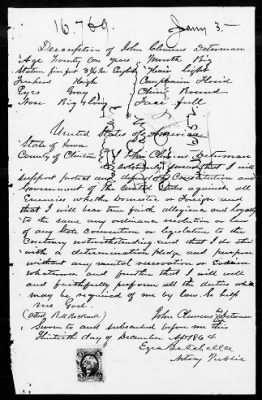 16.769 Jany 3 -
Description of John Clemens Determan
Age Twenty One Years Mouth Big
Stature five feet 3 1/2 in English Hair Light
Forehead High Complexion Florid
Eyes Gray Chin Round
Nose Big & Long Face full
United States of America
State of Iowa
County of Clinton John Clemens Determan
do solemnly swear that I will
support protect and defend the Constitution and
Government of the United States against all
Enemies whether Domestic or Foreign and
that I will bear true faith allegiance and loyalty
to the same any ordinance resolution or law
of any State Convention or legislation to the
Contrary notwithstanding and that I do this
with a determination pledge and purpose
without any mental reservation or evasion
whatsoever and further that I will well
and faithfully perform all the duties which
may be required of me by law So help
me God.
(Attest) John Clemens Determan
Sworn to and subscribed before me this
Thirtieth day of December AD 1864
Notary Public